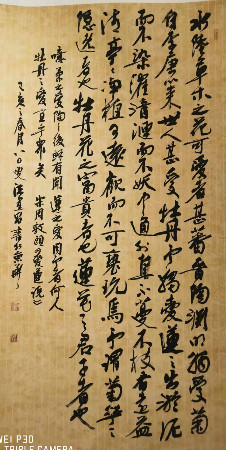 水陸草木之花可愛者甚蕃晋陶渊明独爱菊
自李唐来世人甚愛牡丹予独愛蓮之出淤泥
而不染濯清涟而不妖中通外直不蔓不枝香远益
清亭亭净植可遠觀而不可亵玩焉予谓菊花之
隐逸者也牡丹花之富貴者也蓮花之君子者也
噫菊之爱陶后鲜有闻蓮之爱同予者何人
牡丹之爱宜乎众矣 宋周敦颐爱蓮说
之春月八〇叟
WEI P30
TRIPLE CAMERA